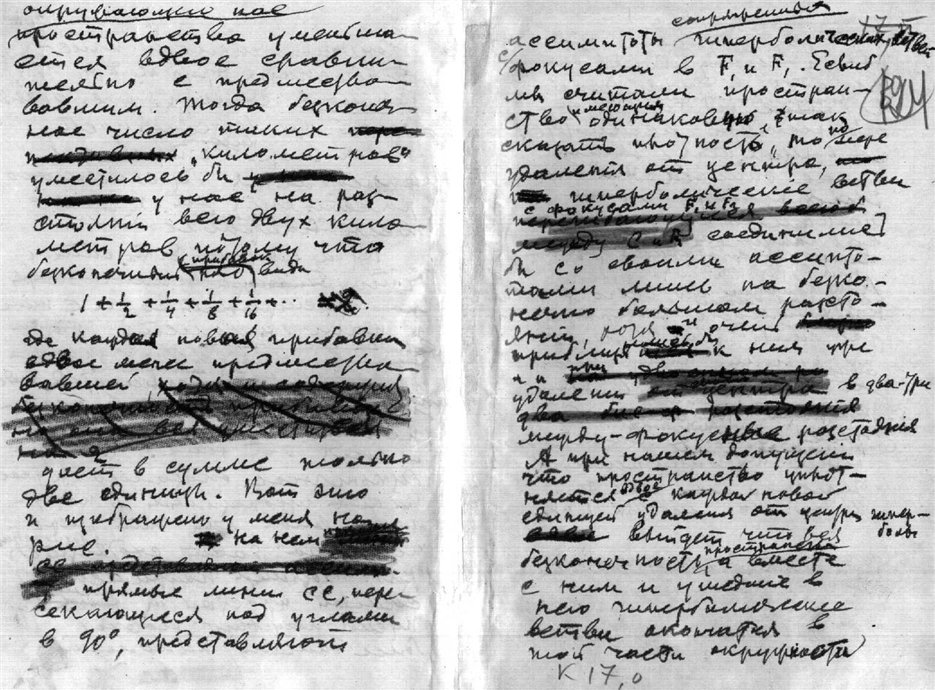 окружающих нас
пространства уменьша-
ется вдвое сравни-
тельно с предшество-
вавшим. Тогда безконеч-
ное число таких
"километров"
уместилось бы
у нас на раз-
стоянии всего двух кило
метров, потому что
безконечный ряд вида
1 + 1/2 + 1/4 + 1/8 + 1/16 + ..
где каждая новая прибавка
вдвое менее предшество-
вавшей
дает в сумме только
две единицы. Вот это
и изображено у меня на
рис. на нем
прямые линии СС, пере
секающиеся под углами
в 90°, представляют
сопряженные
ассимптоты гиперболических ветвей
с фокусами в F, и F,. Если б
мы считали простран-
ство имеющим одинаковую, так
сказать плотность, то по мере
удаления от центра,
гиперболические ветви
с фокусами F, и F₂
между С и соединились
бы со своими ассимпто-
тами лишь на безко-
нечно большом разсто-
янии, хотя и очень
приблизились бы к ним уже
при
удалении в два-три
между-фокусные разстояния
А при нашем допущении
что пространство уплот-
няется вдвое с каждой новой
единицей удаления от центра гипер-
болы
выйдет что вся
безконечность пространства а вместе
с ним и ушедшие в
него гиперболические
ветви окончатся в
той части окружности
К 17, 0